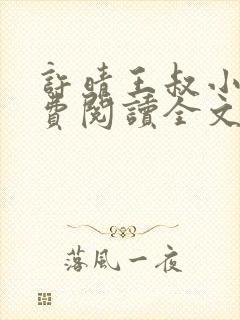 許晴王叔小
費閱讀全文
落風一夜